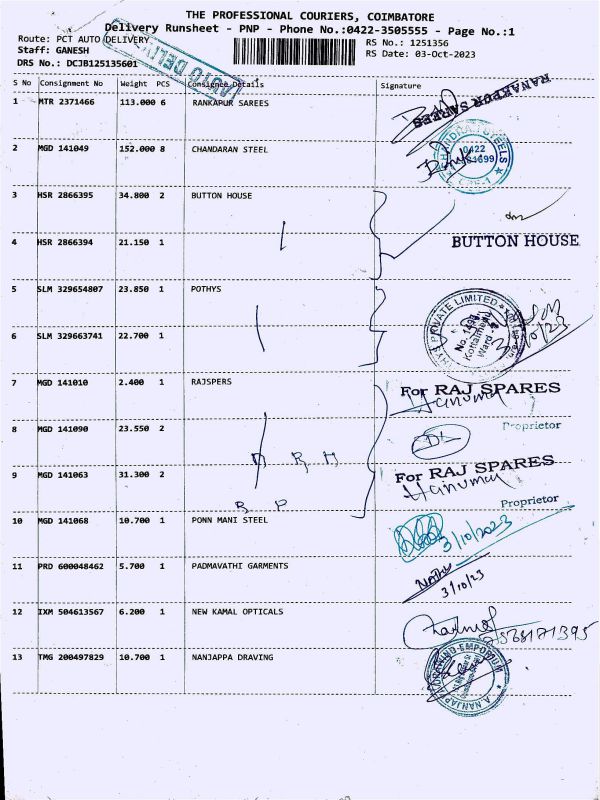 THE PROFESSIONAL COURIERS, COIMBATORE
Delivery Runsheet - PNP - Phone No.:0422-3505555 - Page No.:1
Route: PCT AUTO DELIVERY
Staff: GANESH
DRS No.: DCJB125135601
RS No.: 1251356
RS Date: 03-Oct-2023
AUTO DELIVERY
S No Consignment No Weight PCS Consignee Details Signature
1 MTR 2371466 113.000 6 RANKAPUR SAREES
RANAKPUR SAREES
2 MGD 141049 152.000 8 CHANDARAN STEEL
0422
CBE-1
3 HSR 2866395 34.800 2 BUTTON HOUSE
4 HSR 2866394 21.150 1
BUTTON HOUSE
5 SLM 329654807 23.850 1 POTHYS
PRIVATE LIMITED
Ward
6 SLM 329663741 22.700 1
3/10/23
7 MGD 141010 2.400 1 RAJSPERS
For RAJ SPARES
Hanuman
Proprietor
8 MGD 141090 23.550 2
DL
9 MGD 141063 31.300 2
For RAJ SPARES
Hanuman
Proprietor
B P
10 MGD 141068 10.700 1 PONN MANI STEEL
3/10/2023
11 PRD 600048462 5.700 1 PADMAVATHI GARMENTS
3/10/23
12 IXM 504613567 6.200 1 NEW KAMAL OPTICALS
13 TMG 200497829 10.700 1 NANJAPPA DRAVING
DRAWING EMPORIUM